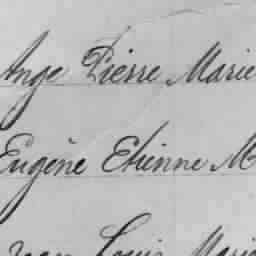 Ange Pierre Marie
Eugène Etienne M
Jean Louis Marie